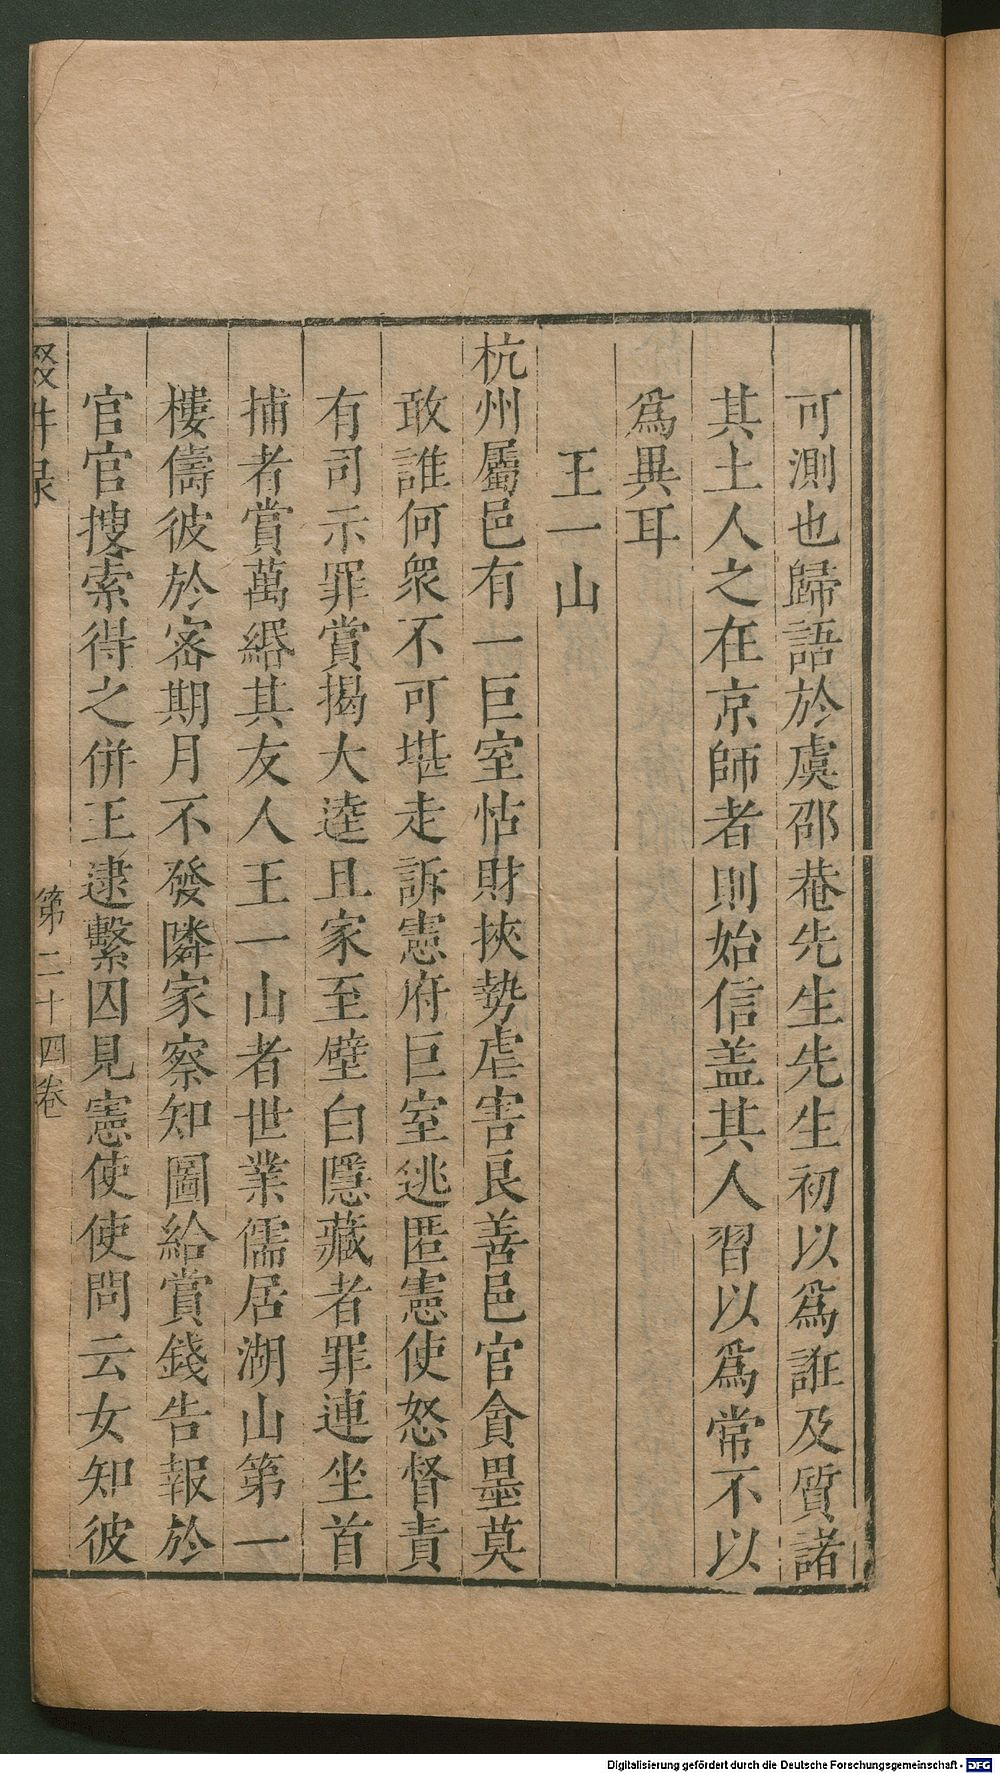 可測也歸語於虞邵菴先生先生初以爲誑及質諸
其土人之在京師者則始信盖其人習以爲常不以
爲異耳
王一山
杭州屬邑有一巨室怙財挾勢虐害良善邑官貪墨莫
敢誰何衆不可堪走訴憲府巨室逃匿憲使怒督責
有司示罪賞揭大逵且家至壁白隱藏者罪連坐首
捕者賞萬緡其友人王一山者世業儒居湖山第一
樓儔彼於宻期月不發隣家察知圖給賞錢告報於
官官搜索得之併王逮繫囚見憲使使問云女知彼
輟畊录
第二十四卷
Digitalisierung gefördert durch die Deutsche Forschungsgemeinschaft - DFG